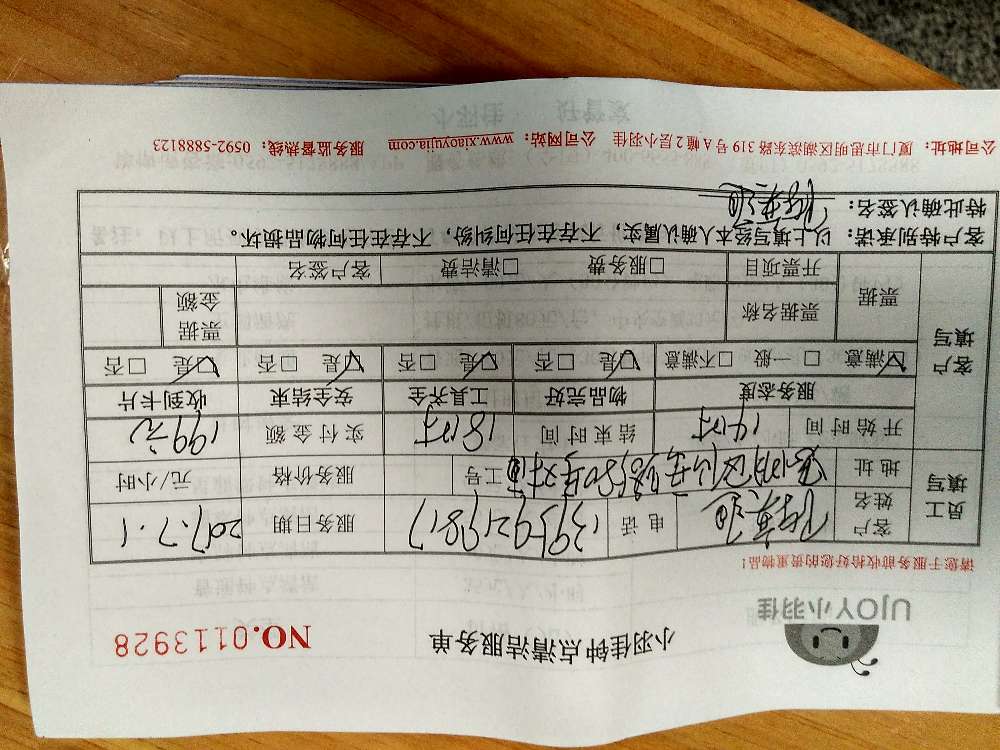 UJOY小羽佳
小羽佳钟点清洁服务单
NO.0113928
请您于服务前收拾好您的贵重物品!
员工填写 客户姓名 电话 13959219817 服务日期 2017.7.1
地址 工号 服务价格 元/小时
开始时间 14时 结束时间 18时 实付金额 199元
客户填写 服务态度 物品完好 工具齐全 安全结束 收到卡片
☑满意 □一般 □不满意 ☑是 □否 ☑是 □否 ☑是 □否 ☑是 □否
票据 票据名称 票据金额
开票项目 □服务费 □清洁费 客户签名
客户特别承诺:以上填写经本人确认属实,不存在任何纠纷,不存在任何物品损坏。
特此确认签名:
公司地址:厦门市思明区湖滨东路319号A幢2层小羽佳 公司网站:www.xiaoyujia.com 服务监督热线:0592-5888123